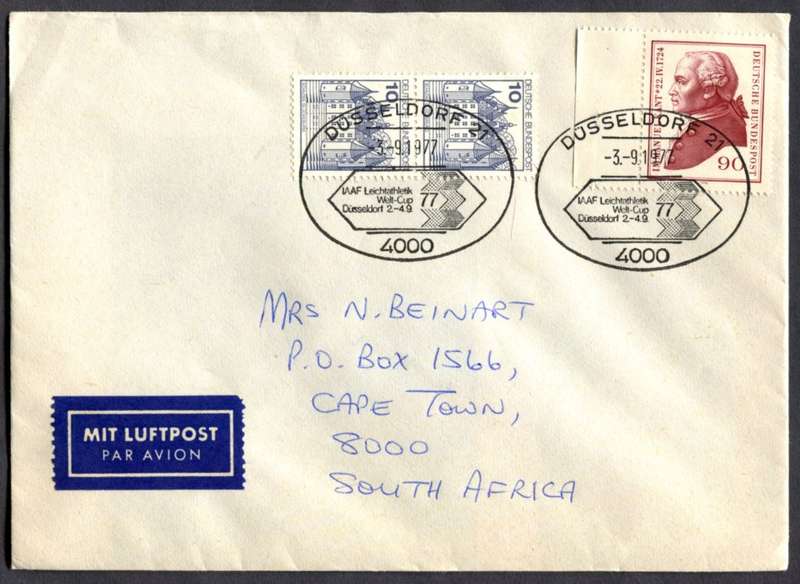 10
DEUTSCHE BUNDESPOST
10
DEUTSCHE BUNDESPOST
IMMANUEL KANT * 22.IV.1724
DEUTSCHE BUNDESPOST
90
DÜSSELDORF 21
-3.-9.1977
IAAF Leichtathletik
Welt-Cup 77
Düsseldorf 2.-4.9.
4000
DÜSSELDORF 21
-3.-9.1977
IAAF Leichtathletik
Welt-Cup 77
Düsseldorf 2.-4.9.
4000
MRS N. BEINART
P.O. BOX 1566,
CAPE TOWN,
8000
SOUTH AFRICA
MIT LUFTPOST
PAR AVION